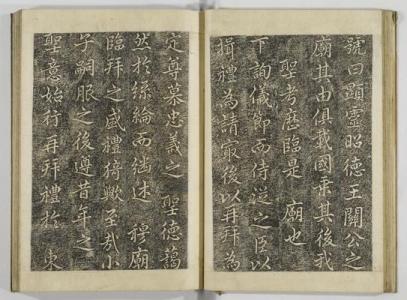 號曰顯靈昭德王關公之
廟其由俱我國乘其後我
聖考歷臨是 廟也
下詢儀節而侍從之臣以
揖禮為請最後以再拜為
定尊慕忠義之 聖德藹
然於絲綸而繼述 穆廟
臨拜之盛禮猗歟至哉小
子嗣服之後遵昔年之
聖意始行再拜禮於 東